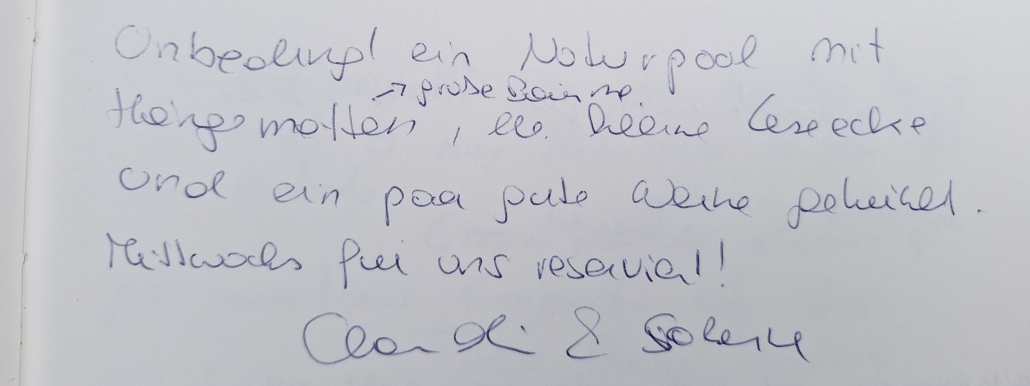 Unbedingt ein Naturpool mit
→ große Bäume
Hängematten, kleine Leseecke
und ein paar gute Weine gekühlt.
Mittwochs für uns reserviert!
Claudi &